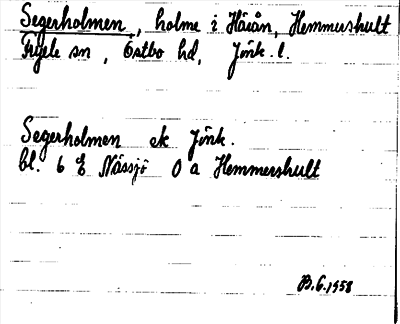 Segerholmen, holme i Härån, Hemmershult
Fryele sn, Östbo hd, Jönk. l.
Segerholmen ek Jönk.
bl. 6 E Nässjö 0 a Hemmershult
B.G. 1958